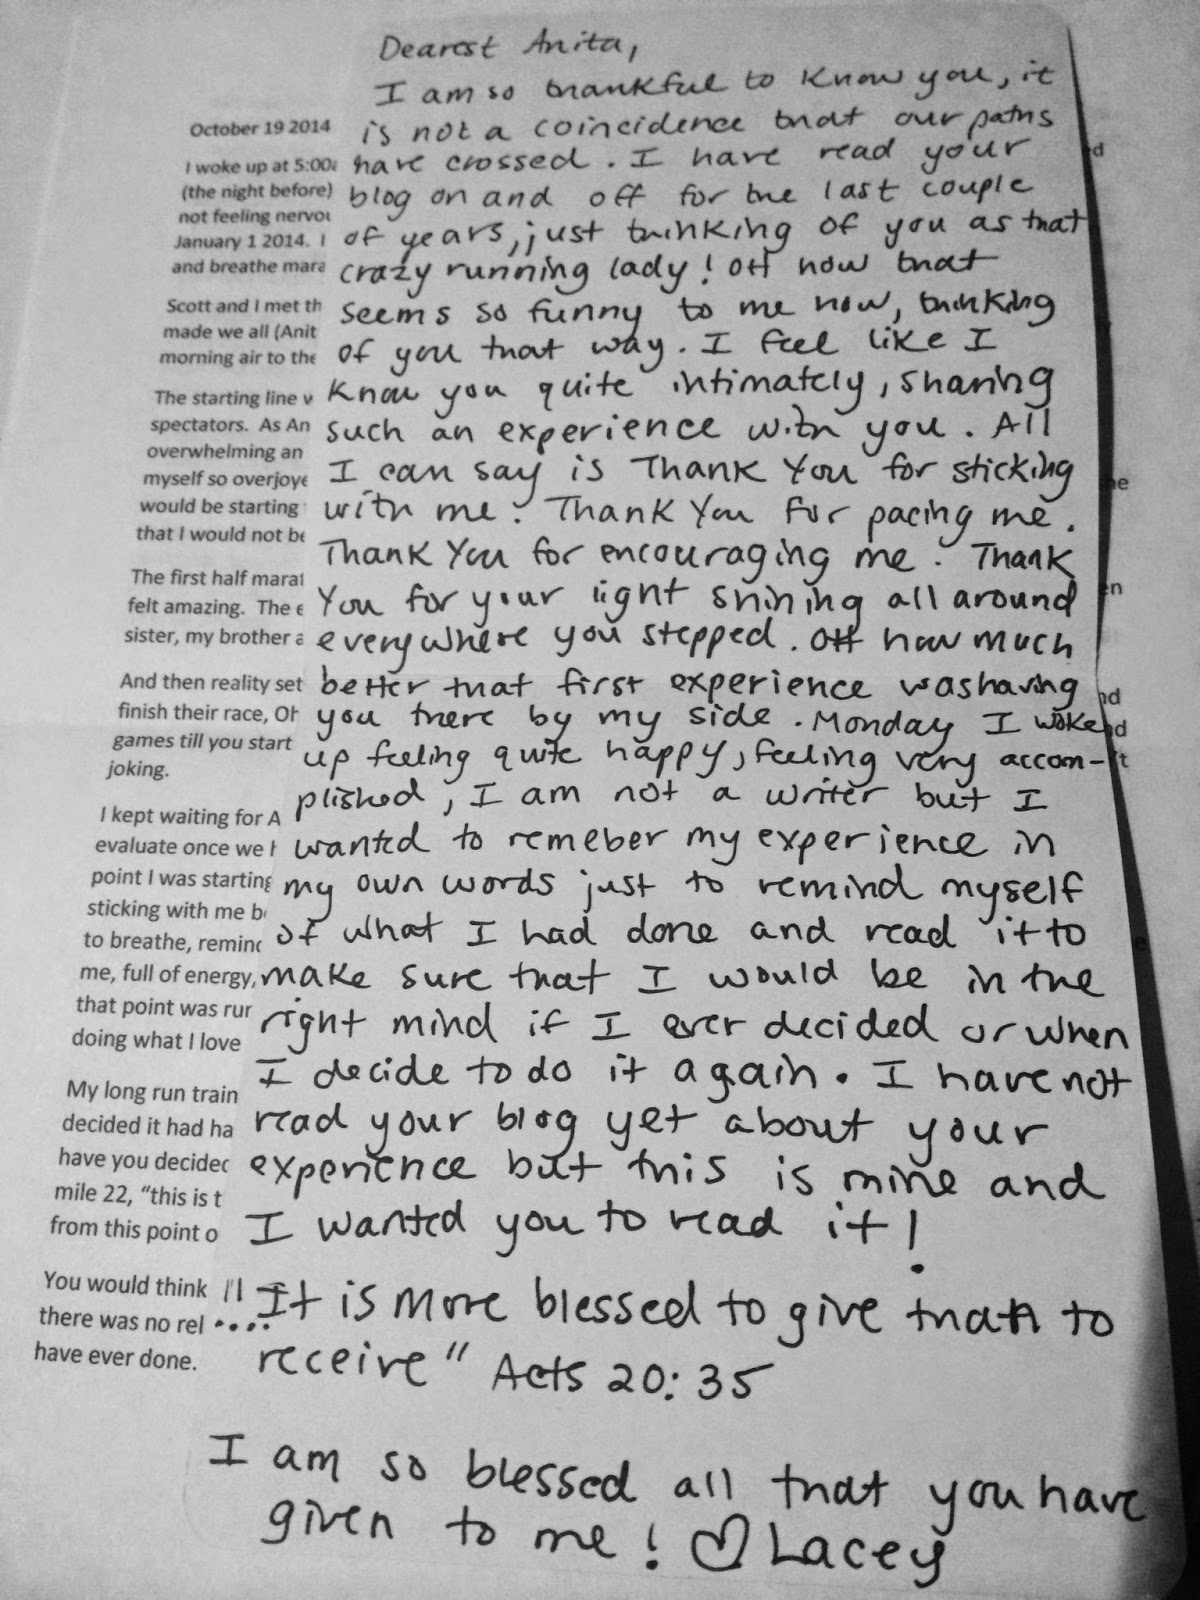 Dearest Anita,
I am so thankful to know you, it
is not a coincidence that our paths
have crossed. I have read your
blog on and off for the last couple
of years, just thinking of you as that
crazy running lady! OH how that
seems so funny to me now, thinking
of you that way. I feel like I
know you quite intimately, sharing
such an experience with you. All
I can say is Thank You for sticking
with me. Thank You for pacing me.
Thank You for encouraging me. Thank
You for your light shining all around
everywhere you stepped. OH how much
better that first experience was having
you there by my side. Monday I woke
up feeling quite happy, feeling very accom-
plished, I am not a writer but I
wanted to remeber my experience in
my own words just to remind myself
of what I had done and read it to
make sure that I would be in the
right mind if I ever decided or when
I decide to do it again. I have not
read your blog yet about your
experience but this is mine and
I wanted you to read it!
"It is more blessed to give than to
.... receive" Acts 20:35
I am so blessed all that you have
given to me! ♡ Lacey
October 19 2014
I woke up at 5:00
(the night before)
not feeling
January 1 2014. I
and breathe
Scott and I met
made we all
morning air to
The starting line
spectators. As
overwhelming
myself so
would be starting
that I would not
The first half
felt amazing. The
sister, my brother
And then reality set
finish their race,
games till you start
joking.
I kept waiting for
evaluate once we
point I was
sticking with me
to breathe,
me, full of energy,
that point was
doing what I love
My long run train
decided it had
have you
mile 22, "this is
from this point
You would think
there was no
have ever done.